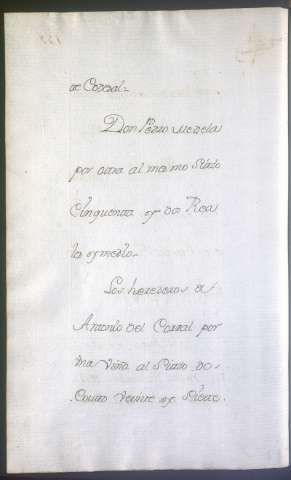 de Corral.
Don Pedro Varela
por otra al mesmo Sitio
Cinquenta y dos Rea
les y medio.
Los herederos de
Antonio del Corral por
vna viña al Sitio de
Couto veinte y Siete.